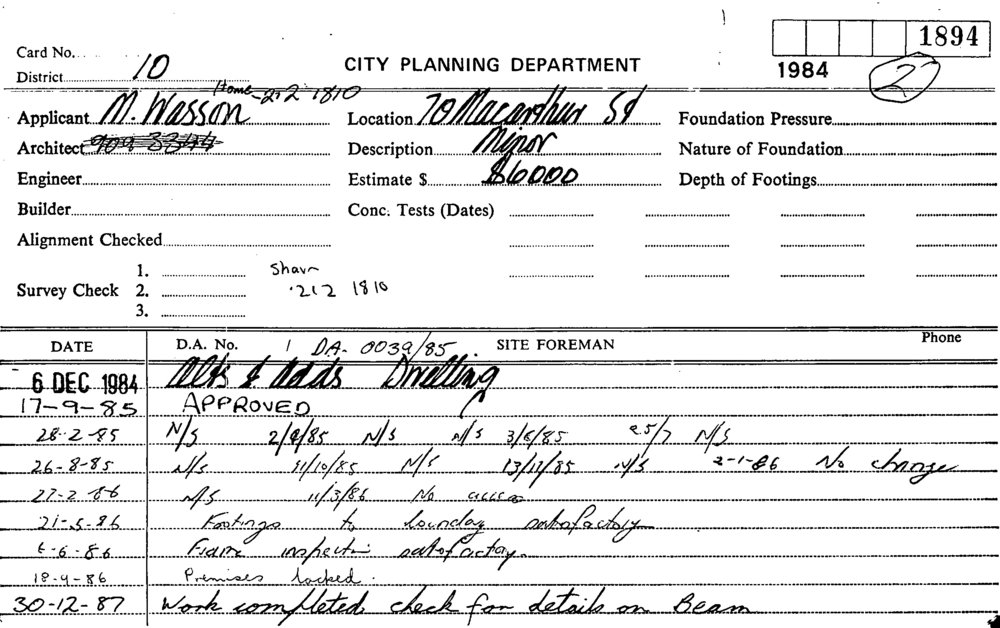 1894
Card No.
1984
27
District 10
CITY PLANNING DEPARTMENT
Home - 212 1810
Applicant M. Wasson
Location 70 Macarthur St
Foundation Pressure
Architect 909 3344
Description Minor
Nature of Foundation
Engineer
Estimate $ $6000
Depth of Footings
Builder
Conc. Tests (Dates)
Alignment Checked
Survey Check
1.
2.
3.
Shaun
212 1810
DATE
D.A. No. 1 DA. 0039/85.
SITE FOREMAN
Phone
6 DEC 1984 Alts & Adds Dwelling
17-9-85 APPROVED
28-2-85 N/S 2/8/85 N/S N/S 3/8/85 25/7 N/S
26-8-85 N/S 31/10/85 N/S 13/12/85 N/S 2-1-86 No change
27-2-86 N/S 11/3/86 No access
21-5-86 Footings to laundry satisfactory
6-6-86 Frame inspection satisfactory.
18-9-86 Premises locked.
30-12-87 Work completed check for details on Beam